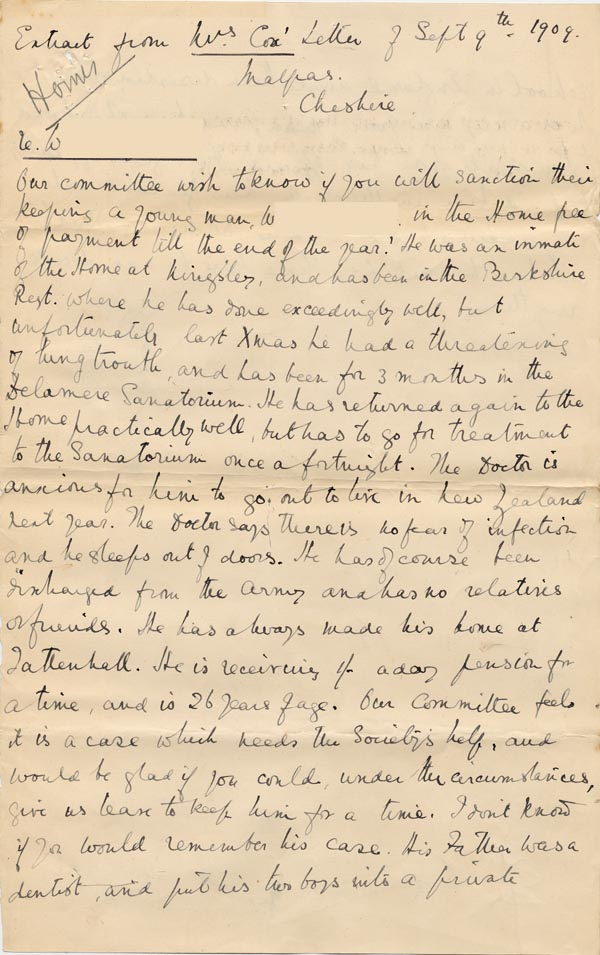 Extract from Mrs Cox' Letter of Sept 9th 1909.
Malpas.
Cheshire
Homes
re. W
Our committee wish to know if you will sanction their
keeping a young man, W in the Home free
of payment till the end of the year! He was an inmate
of the Home at Kingsley, and has been in the Berkshire
Regt. where he has done exceedingly well, but
unfortunately last Xmas he had a threatening
of lung trouble, and has been for 3 months in the
Delamere Sanatorium. He has returned again to the
Home practically well, but has to go for treatment
to the Sanatorium once a fortnight. The Doctor is
anxious for him to go out to live in New Zealand
next year. The Doctor says there is no fear of infection
and he sleeps out of doors. He has of course been
discharged from the Army and has no relatives
or friends. He has always made his home at
Tattenhall. He is receiving 1/- a day pension for
a time, and is 26 years of age. Our Committee feels
it is a case which needs the Society's help, and
would be glad if you could, under the circumstances,
give us leave to keep him for a time. I don't know
if you would remember his case. His Father was a
dentist, and put his two boys into a private